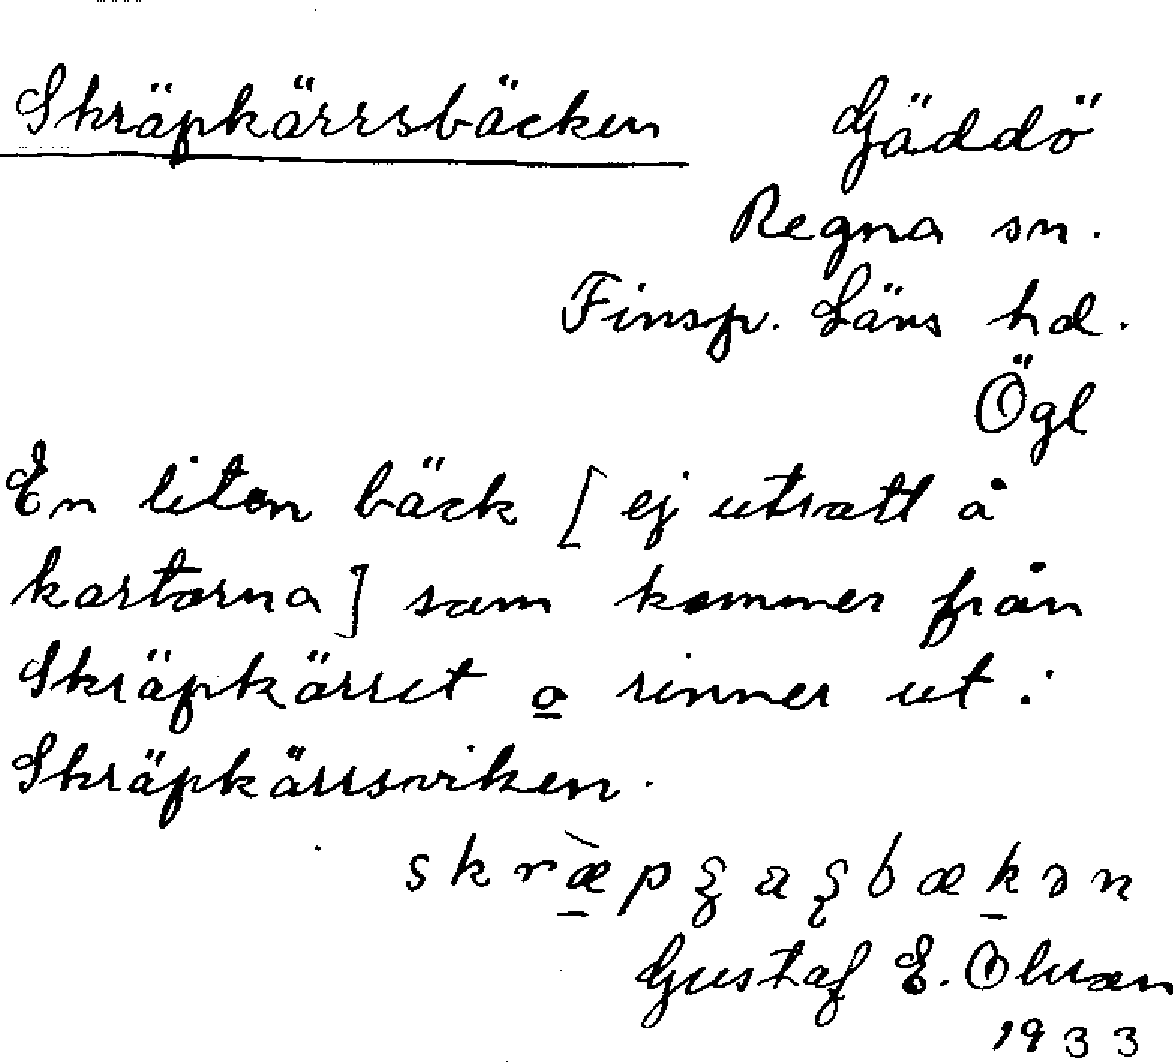 Skräpkärrsbäcken Gäddö
Regna sn.
Finsp. Läns hd.
Ögl
En liten bäck [ej utsatt å
kartorna] som kommer från
Skräpkärret o rinner ut i
Skräpkärrsviken.
Gustaf E. Olsson
1933